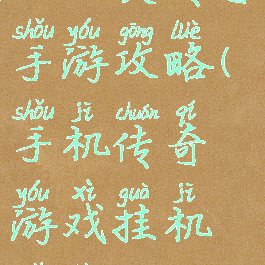 shǒu yóu gōng lüè
手游攻略(
shǒu jī chuán qí
手机传奇
yóu xì guà jī
游戏挂机